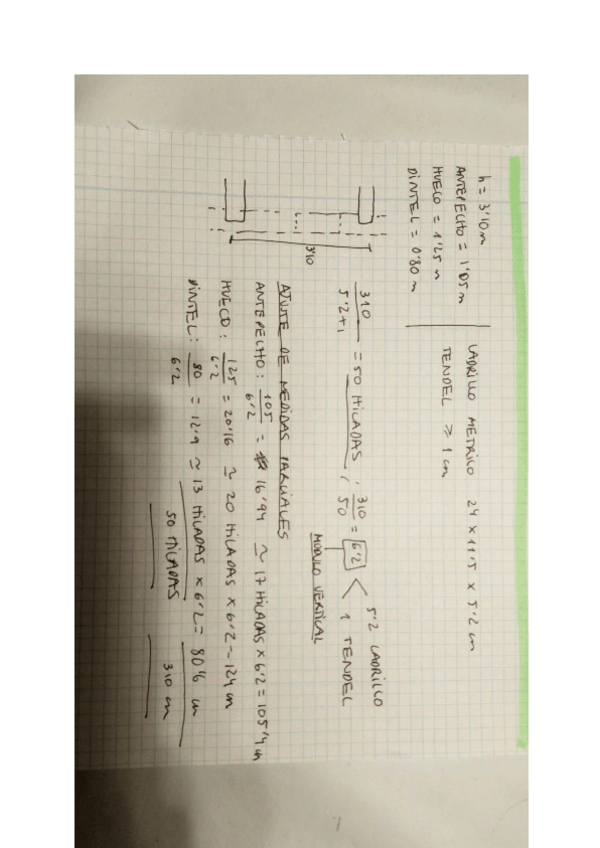 h = 3'10 m
ANTEPECHO = 1'05 m
HUECO = 1'25 m
DINTEL = 0'80 m
LADRILLO METRICO 24 x 11'5 x 5'2 cm
TENDEL ≥ 1 cm
3'10
310 / 5'2+1 = 50 HILADAS ; 310 / 50 = 6'2 < 5'2 LADRILLO
1 TENDEL
MODULO VERTICAL
AJUSTE DE MEDIDAS PARCIALES
ANTEPECHO : 105 / 6'2 = 16'94 ≃ 17 HILADAS x 6'2 = 105'4 cm
HUECO : 125 / 6'2 = 20'16 ≃ 20 HILADAS x 6'2 = 124 cm
DINTEL : 80 / 6'2 = 12'9 ≃ 13 HILADAS x 6'2 = 80'6 cm
50 HILADAS 310 cm